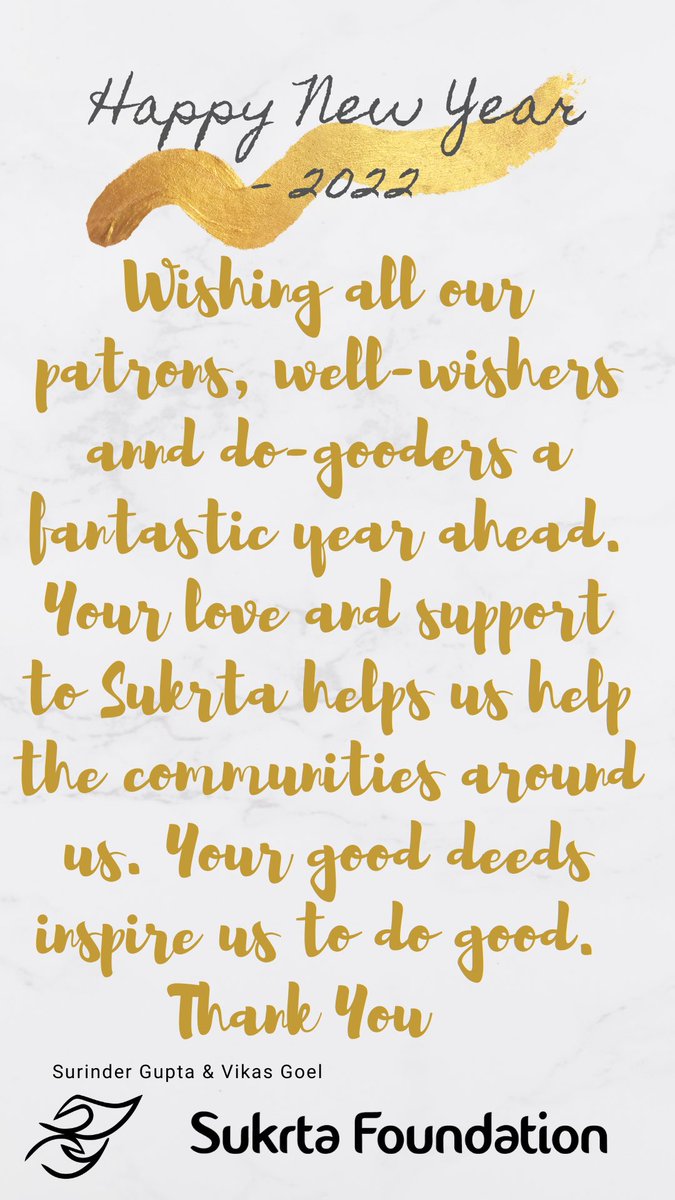 Happy New Year
- 2022
Wishing all our
patrons, well-wishers
annd do-gooders a
fantastic year ahead.
Your love and support
to Sukrta helps us help
the communities around
us. Your good deeds
inspire us to do good.
Thank You
Surinder Gupta & Vikas Goel
Sukrta Foundation